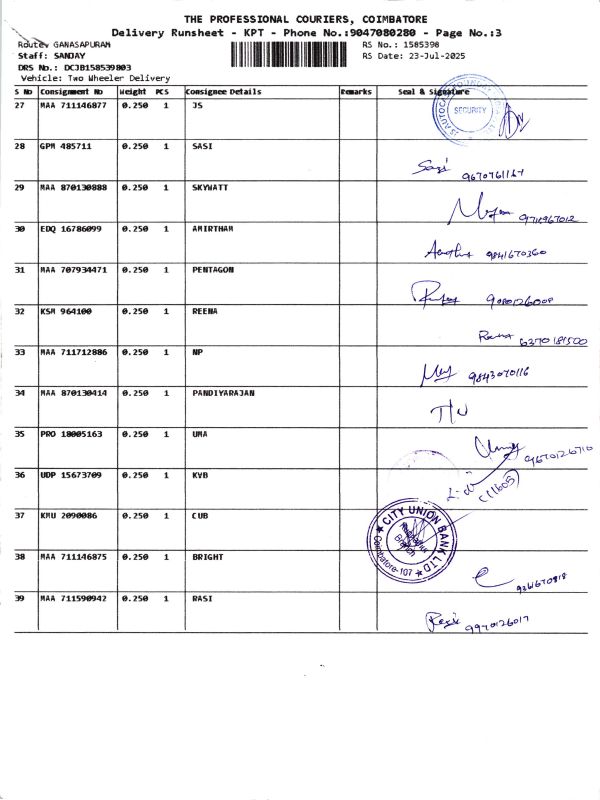 THE PROFESSIONAL COURIERS, COIMBATORE
Delivery Runsheet - KPT - Phone No.:9047080280 - Page No.:3
Route: GANASAPURAM
RS No.: 1585398
Staff: SANJAY
RS Date: 23-Jul-2025
DRS No.: DCJB158539803
Vehicle: Two Wheeler Delivery
S No Consignment No Weight PCS Consignee Details Remarks Seal & Signature
27 MAA 711146877 0.250 1 JS SECURITY
28 GPM 485711 0.250 1 SASI
Sasi 9670761167
29 MAA 870130888 0.250 1 SKYWATT
30 EDQ 16786099 0.250 1 AMIRTHAM
9841670360
31 MAA 707934471 0.250 1 PENTAGON
9080126008
32 KSM 964100 0.250 1 REENA
Reena 6370181500
33 MAA 711712886 0.250 1 NP
9843070116
34 MAA 870130414 0.250 1 PANDIYARAJAN
35 PRO 18005163 0.250 1 UMA
9670126710
36 UDP 15673709 0.250 1 KVB
(11605)
37 KMU 2090086 0.250 1 CUB
CITY UNION BANK LTD
Branch
Coimbatore-107
38 MAA 711146875 0.250 1 BRIGHT
9361670818
39 MAA 711590942 0.250 1 RASI
Rasi 9970126017